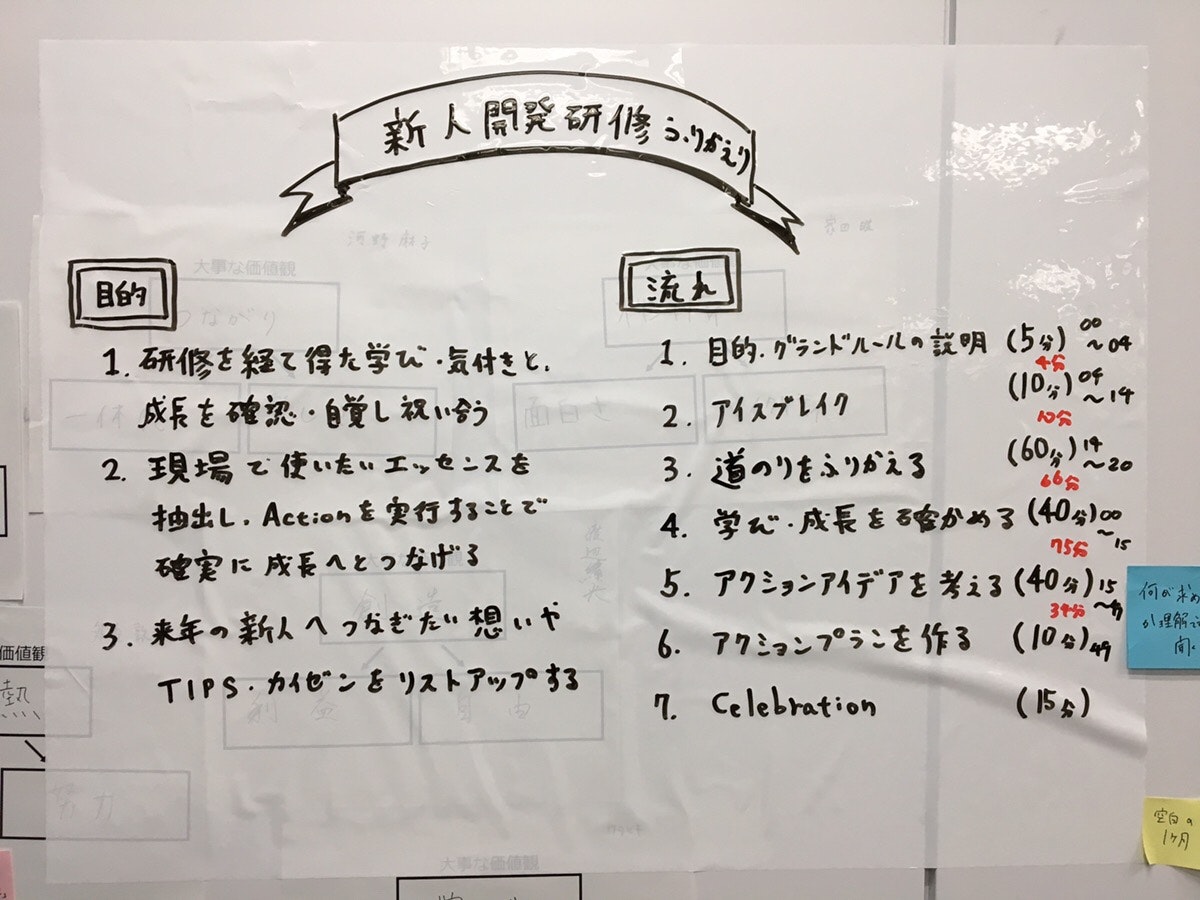 新人開発研修ふりかえり
目的
1. 研修を経て得た学び・気付きと、
成長を確認・自覚し祝い合う
2. 現場で使いたいエッセンスを
抽出し、Actionを実行することで
確実に成長へとつなげる
3. 来年の新人へつなぎたい想いや
TIPS・カイゼンをリストアップする
流れ
1. 目的・グランドルールの説明 (5分) 00~04
4分
2. アイスブレイク (10分) 04~14
10分
3. 道のりをふりかえる (60分) 14~20
66分
4. 学び・成長を確かめる (40分) 00~15
75分
5. アクションアイデアを考える (40分) 15~49
34分
6. アクションプランを作る (10分) 49
7. Celebration (15分)
大事な価値観
つながり
面白さ
価値観
熱
努力
自由
大事な価値観
何が求め
か理解
聞く
空白の
1ヶ月